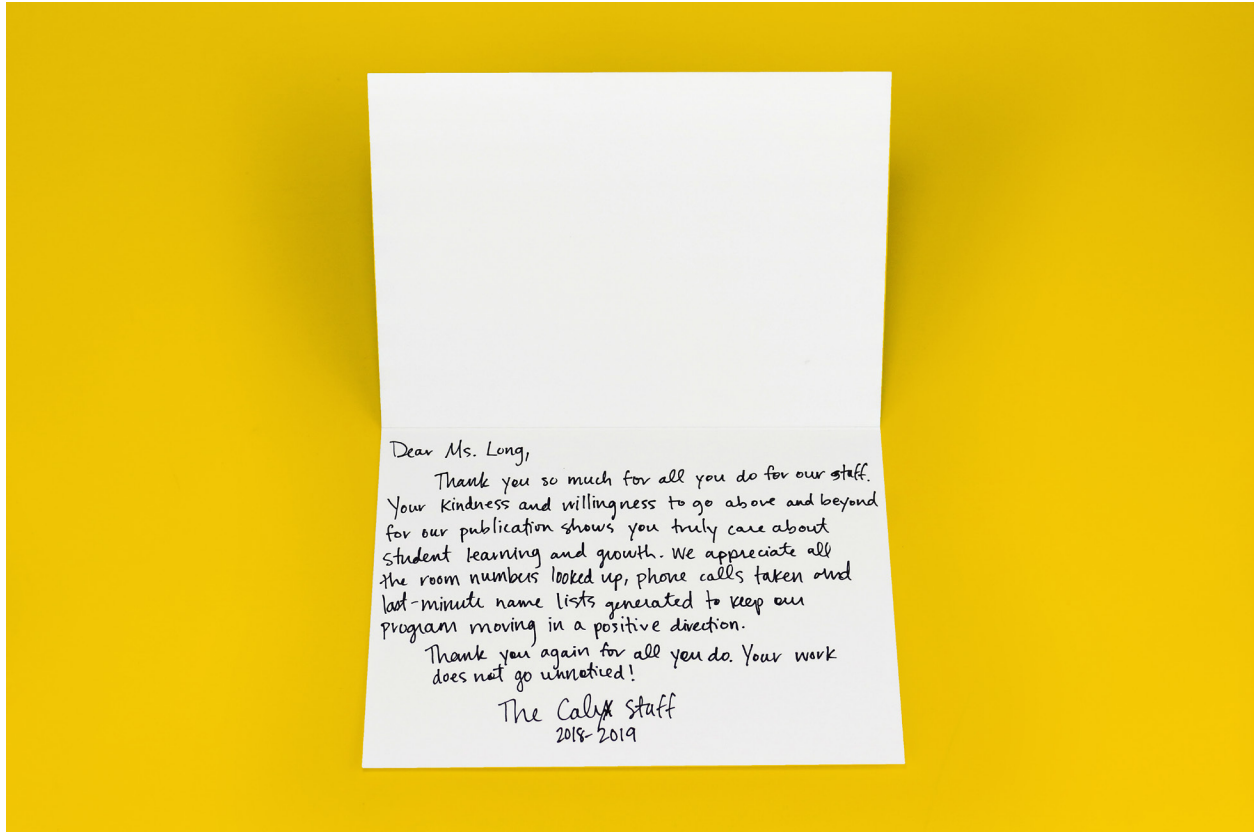 Dear Ms. Long,
Thank you so much for all you do for our staff.
Your kindness and willingness to go above and beyond
for our publication shows you truly care about
student learning and growth. We appreciate all
the room numbers looked up, phone calls taken and
last-minute name lists generated to keep our
program moving in a positive direction.
Thank you again for all you do. Your work
does not go unnoticed!
The Calyx Staff
2018-2019